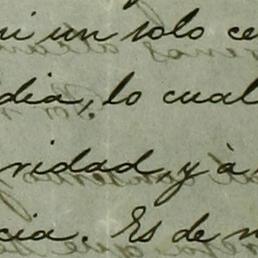 ni un solo ce
dia, lo cual
vidad, y à
cia. Es de